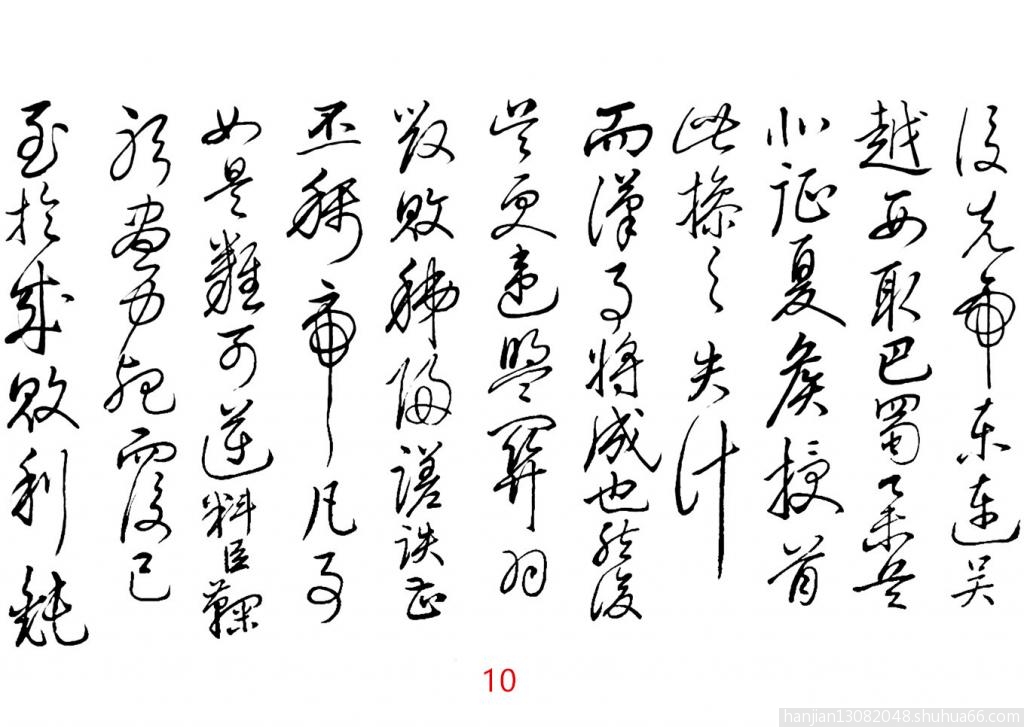 後先帝東連吳
越西取巴蜀舉兵
北征夏侯授首
此操之失計
而漢事將成也然後
吳更違盟關羽
毀敗秭歸蹉跌曹
丕稱帝凡事
如是難可逆料臣鞠
躬盡力死而後已
至於成敗利鈍
10
hanjian13082048.shuhua66.com